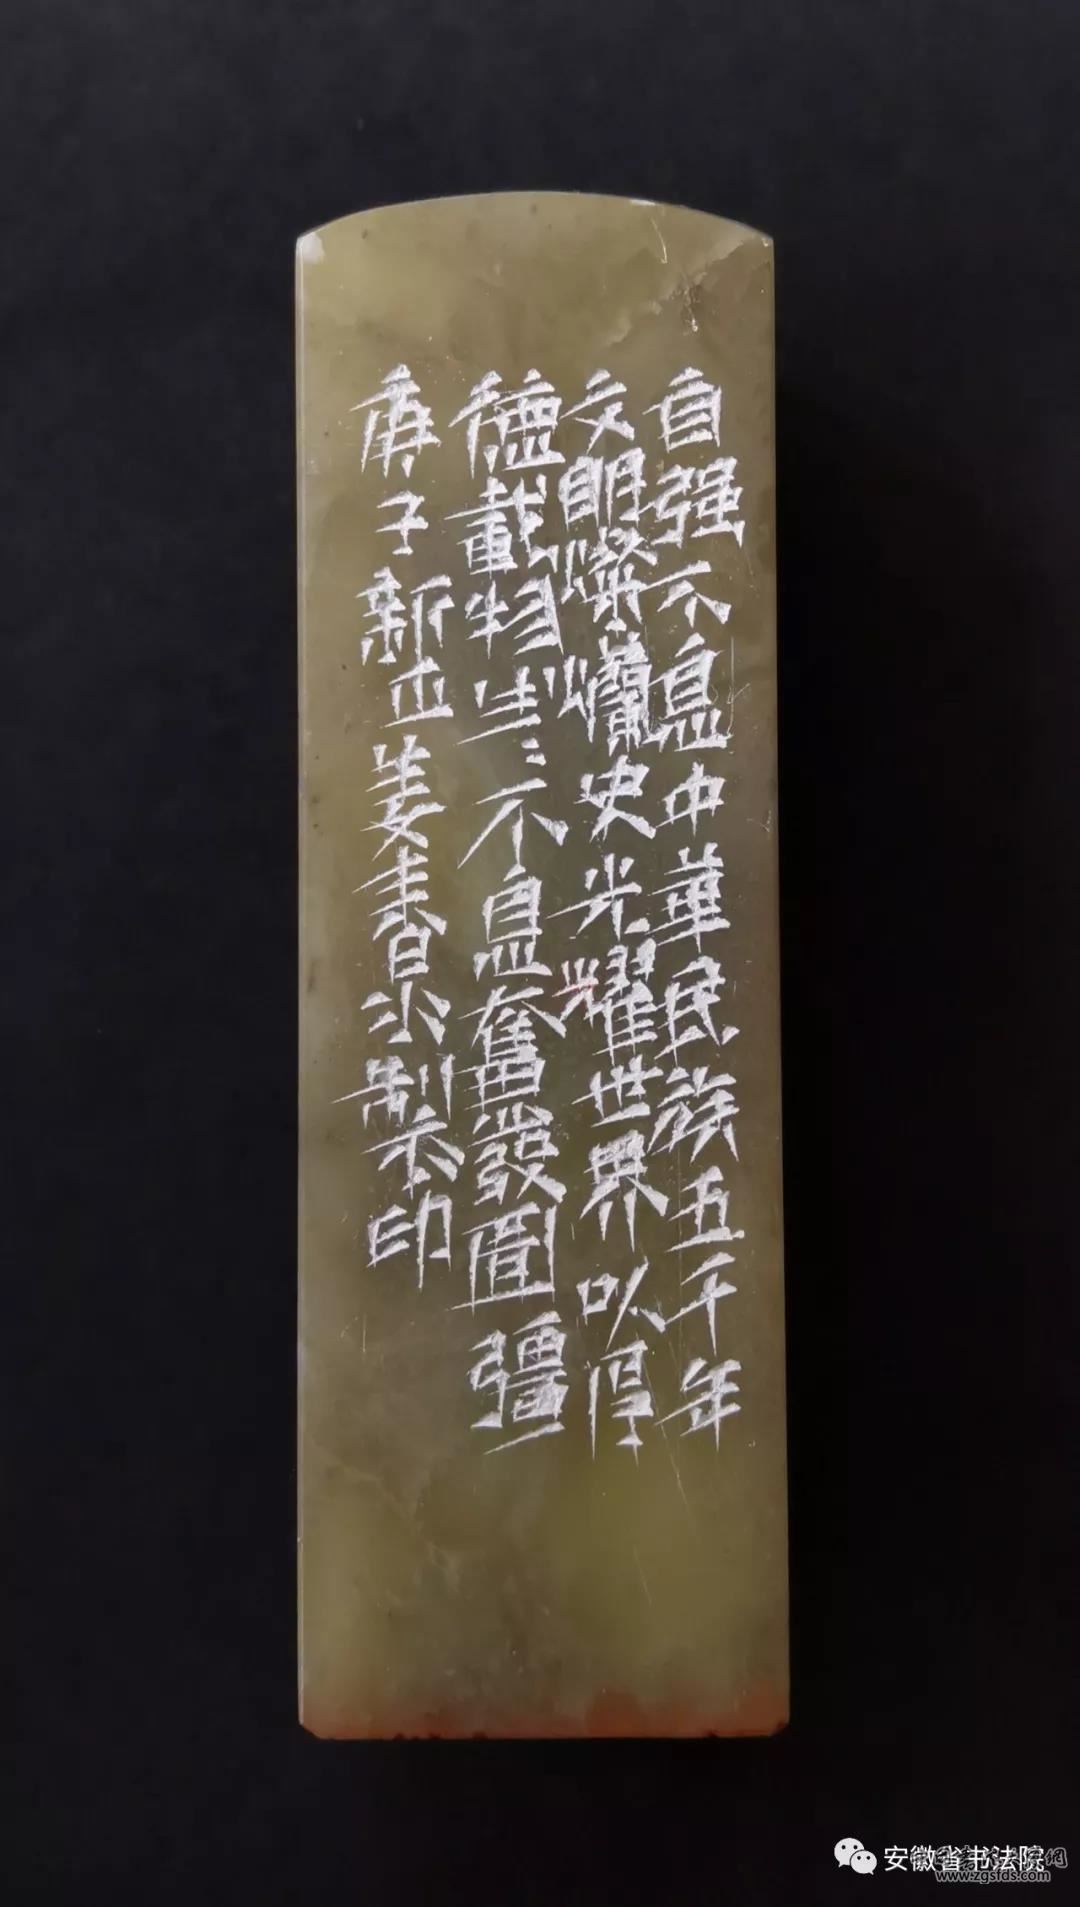 自强不息中華民族五千年
文明燦爛史光耀世界以厚
德載物生〻不息奮發圖彊
庚子新正姜春水制印
安徽省书法院
www.zgsfds.com